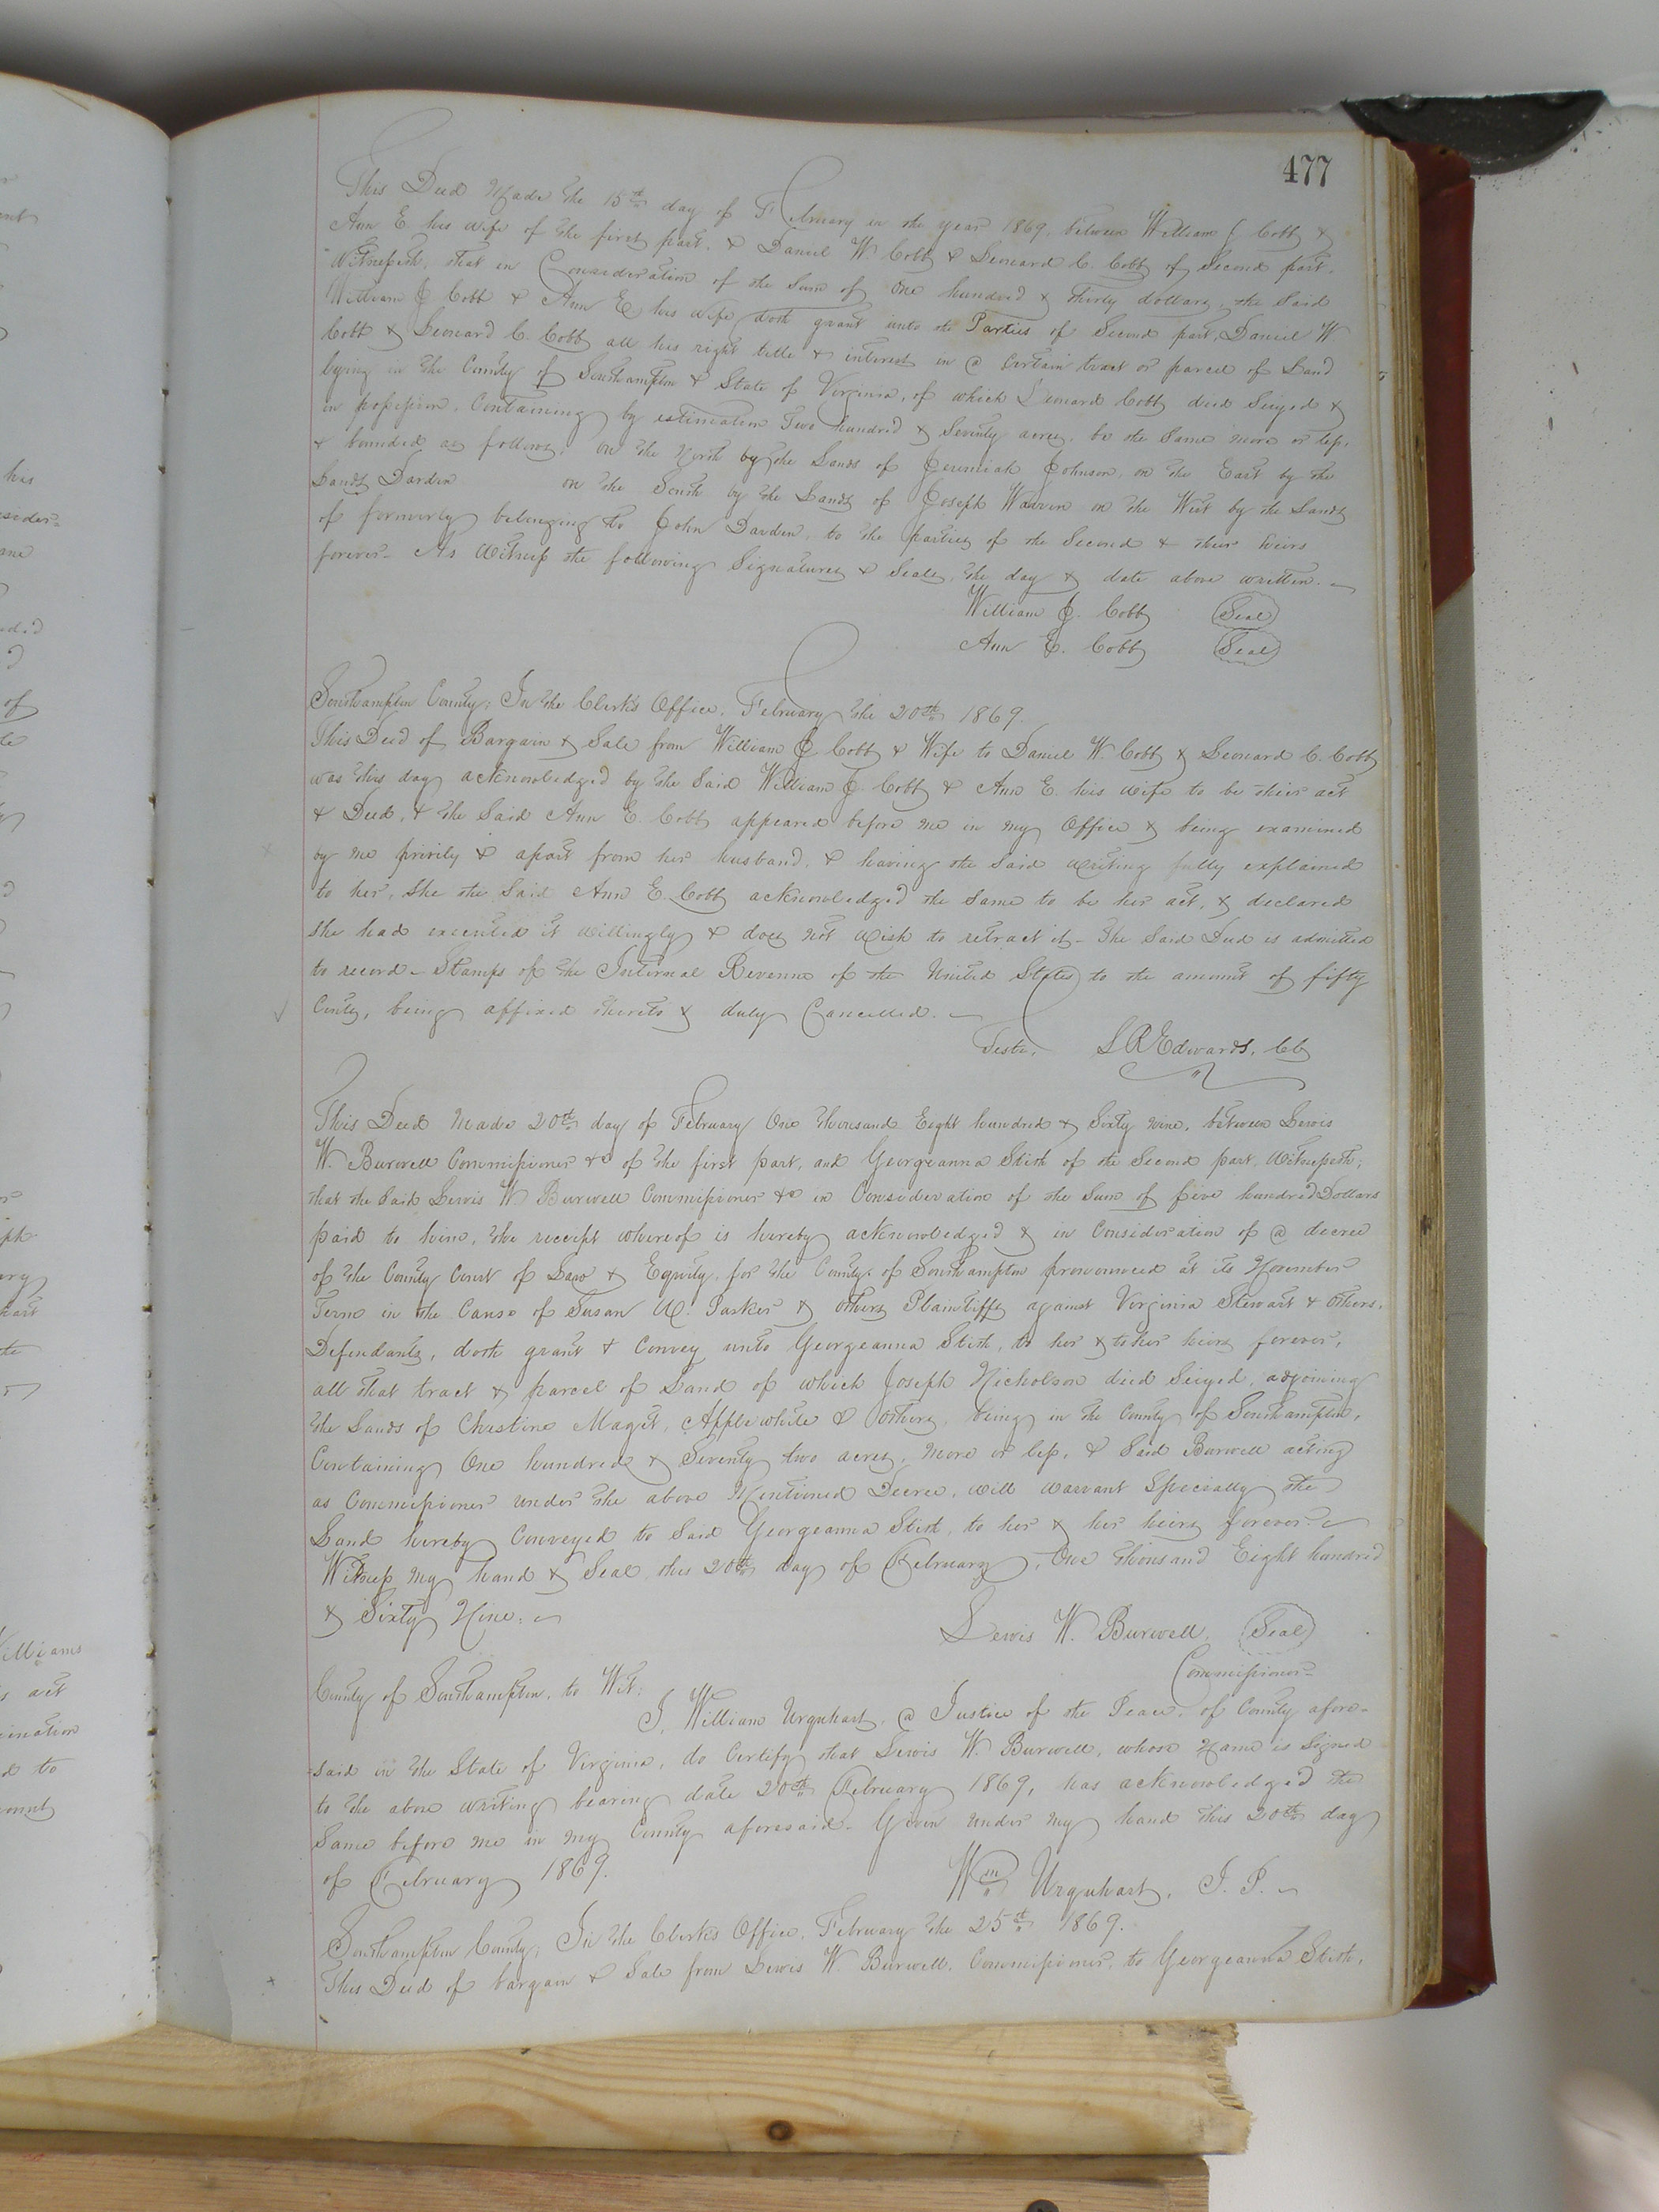 477
This Deed Made the 15th day of February in the year 1869. between William J. Cobb &
Ann E. his wife of the first part. & Daniel W Cobb & Leonard C. Cobb of Second part.
Witnesseth, that in Consideration of the Sum of One hundred & thirty dollars, the Said
William J Cobb & Ann E. his wife doth grant unto the Parties of Second part, Daniel W
Cobb & Leonard C. Cobb all his right title & interest in @ Certain tract or parcel of Land
lying in the County of Southampton & State of Virginia, of which Leonard Cobb died Seized &
in possession. Containing by estimation Two hundred & Seventy acres. be the Same more or less.
& bounded as follows, on the North by the Lands of Jeremiah Johnson, on the East by the
Lands Darden on the South by the Lands of Joseph Warren on the West by the Lands
of formerly belonging to John Darden, to the parties of the Second & their heirs
forever. As Witness the following Signatures & Seals, the day & date above written.
William J. Cobb Seal
Ann E. Cobb Seal
Southampton County; In the Clerk's Office. February the 20th 1869.
This Deed of Bargain & Sale from William J. Cobb & Wife to Daniel W. Cobb & Leonard C. Cobb
was this day acknowledged by the Said William J. Cobb & Ann E. his wife to be their act
& Deed, & the Said Ann E. Cobb appeared before me in my Office & being examined
by me privily & apart from her husband, & having the Said writing fully explained
to her, She the Said Ann E. Cobb acknowledged the Same to be her act, & declared
She had executed it willingly & does not wish to retract it - The Said Deed is admitted
to record - Stamps of the Internal Revenue of the United States to the amount of fifty
Cents, being affixed thereto & duly Cancelled.
Teste. L R Edwards, CC
This Deed Made 20th day of February One thousand Eight hundred & Sixty nine, between Lewis
W. Burwell Commissioner &c of the first part, and Georgeanna Stith of the Second part, Witnesseth;
that the Said Lewis W Burwell Commissioner &c in Consideration of the Sum of five hundred Dollars
paid to him, the receipt whereof is hereby acknowledged & in Consideration of @ decree
of the County Court of Law & Equity, for the County of Southampton pronounced at its November
Term in the Cause of Susan Parker & others Plaintiffs against Virginia Stewart & others.
Defendants, doth grant & Convey unto Georgeanna Stith, to her & to her heirs forever,
all that tract & parcel of Land of which Joseph Nicholson died Seized, adjoining
the Lands of Christine Magét, Applewhite & others, being in the County of Southampton,
Containing One hundred & Seventy two acres, more or less, & Said Burwell acting
as Commissioner under the above Mentioned Decree, will warrant Specially the
Land hereby Conveyed to Said Georgeanna Stith, to her & her heirs forever.
Witness my hand & Seal this 20th day of February, One thousand Eight hundred
& Sixty Nine.
Lewis W. Burwell, Seal
Commissioner
County of Southampton, to Wit:
I, William Urquhart, @ Justice of the Peace, of County afore-
said in the State of Virginia, do Certify that Lewis W. Burwell, whose Name is Signed
to the above writing bearing date 20th February 1869, has acknowledged the
Same before me in my County aforesaid. Given under my hand this 20th day
of February 1869.
Wm Urquhart, J. P.
Southampton County, In the Clerk's Office, February the 25th 1869.
This Deed of bargain & Sale from Lewis W. Burwell, Commissioner, to Georgeanna Stith,